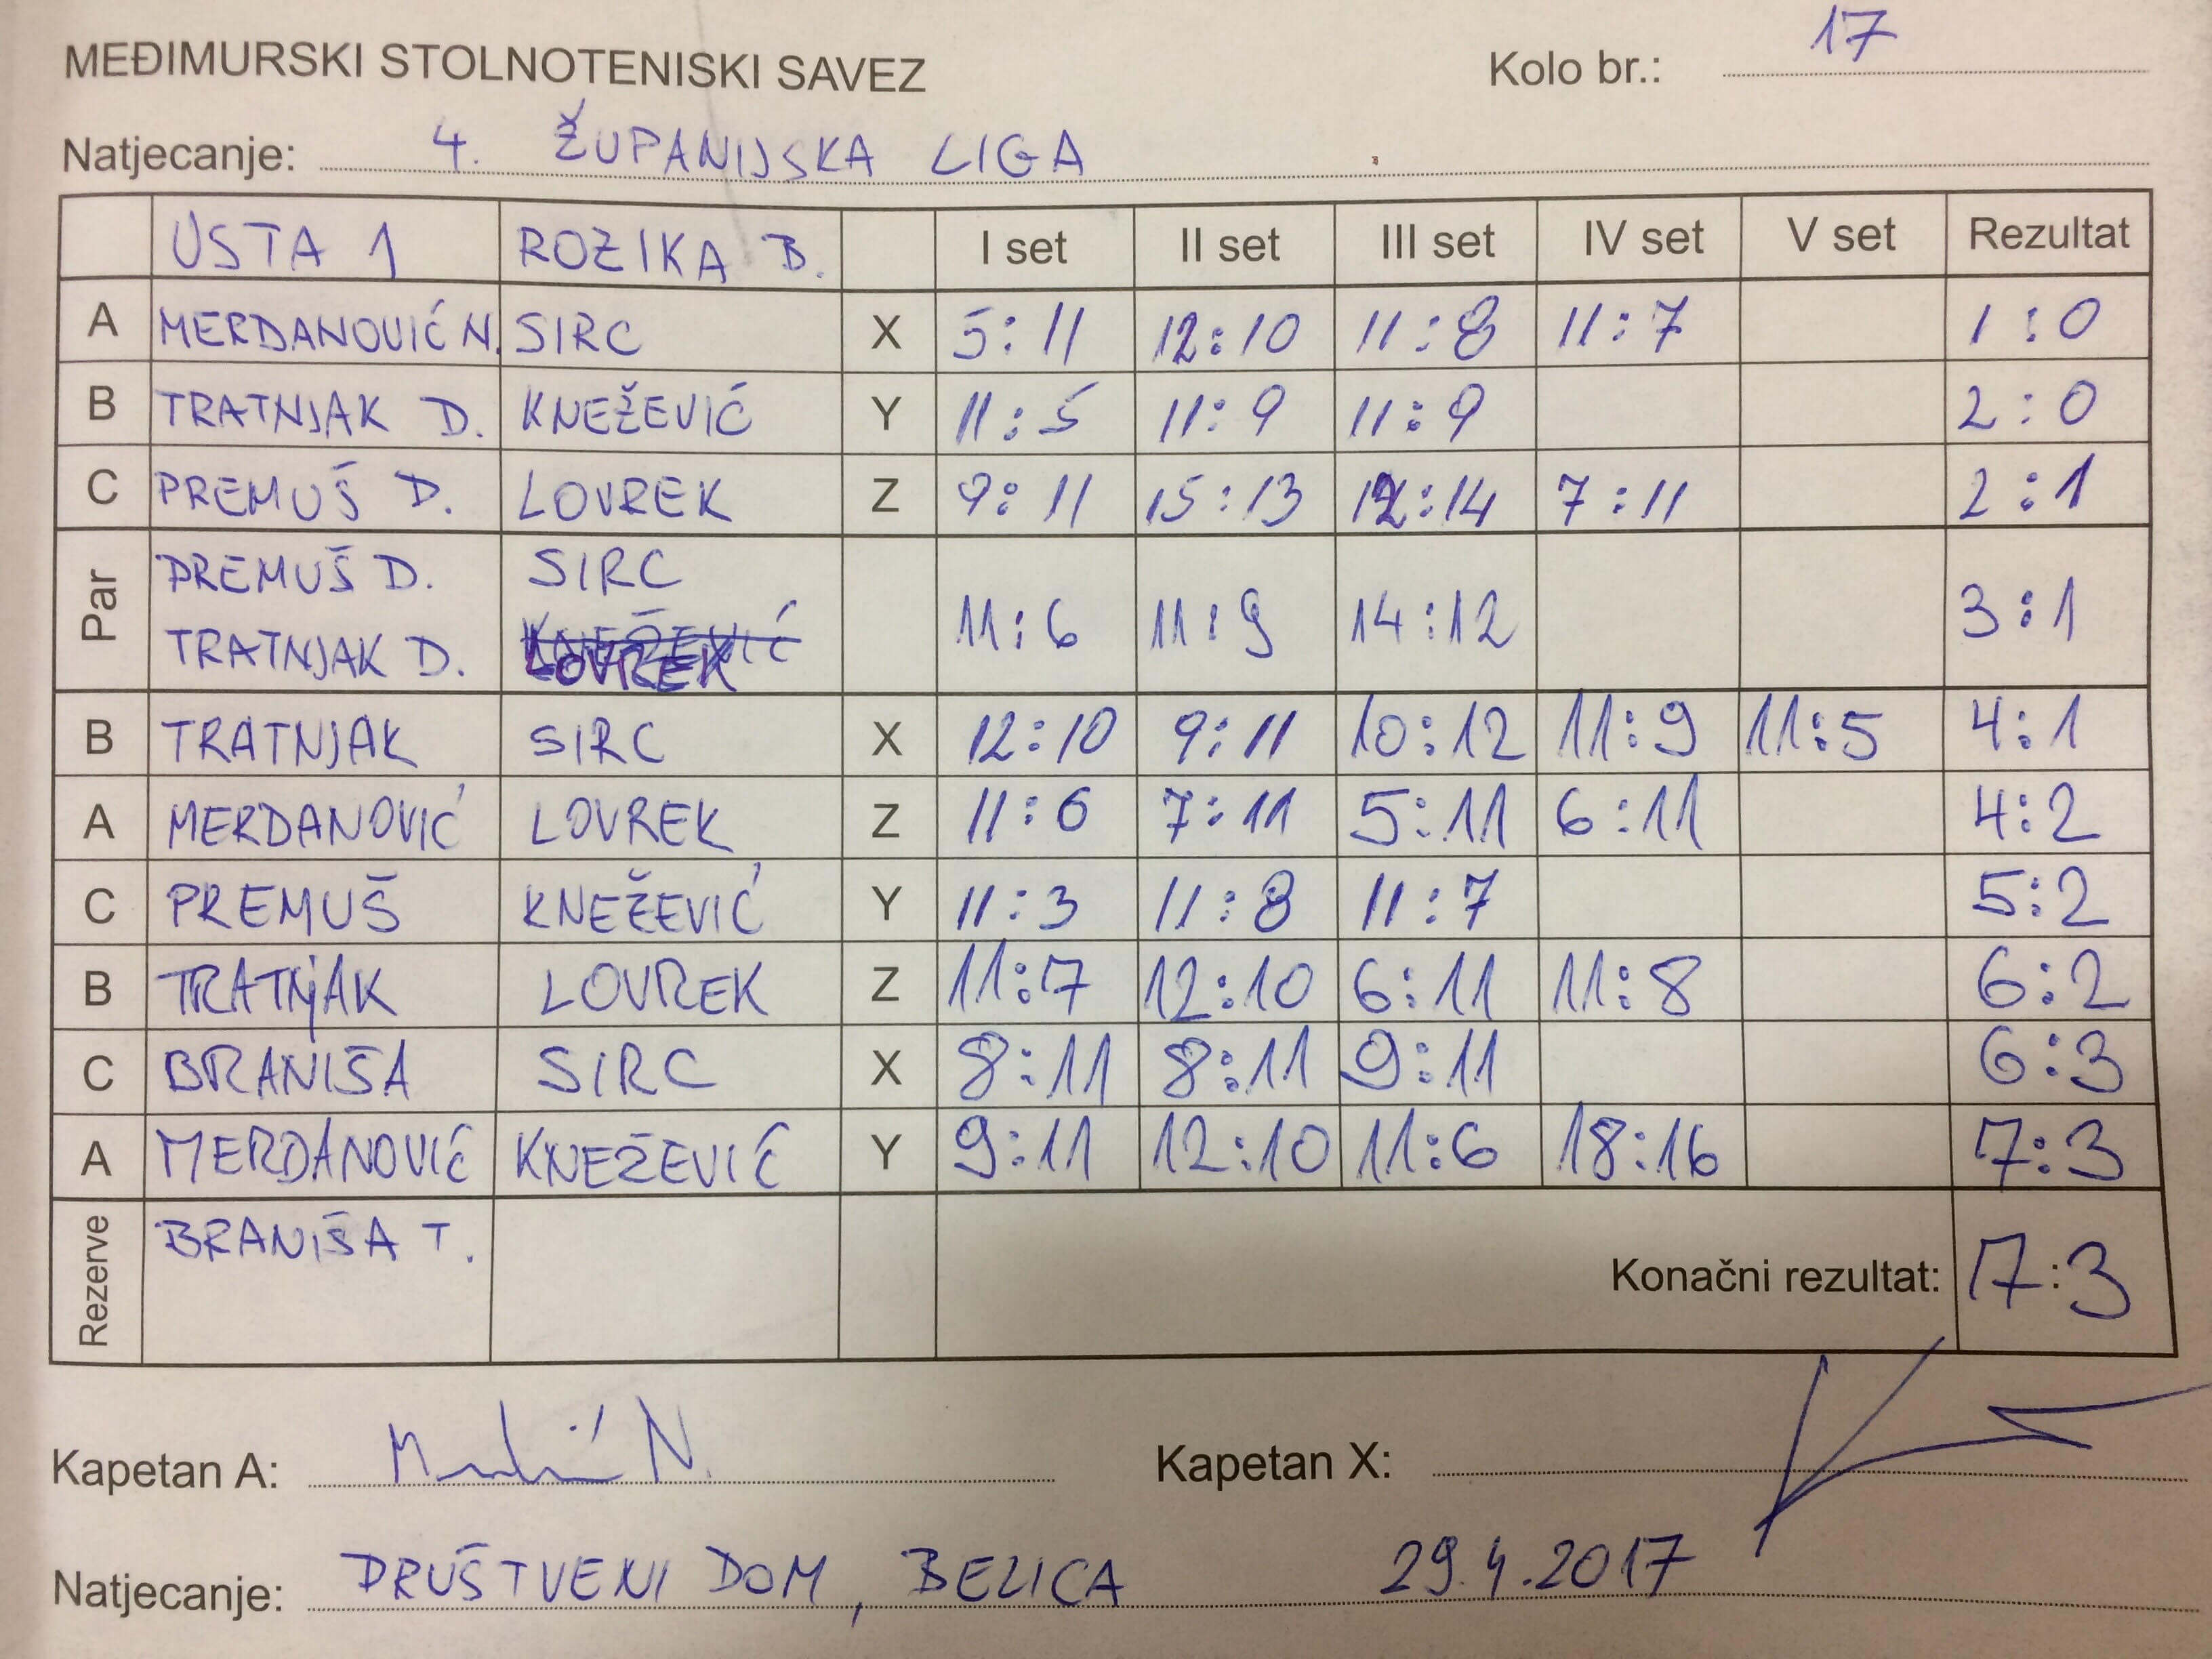 MEĐIMURSKI STOLNOTENISKI SAVEZ Kolo br.: 17
Natjecanje: 4. ŽUPANIJSKA LIGA
USTA 1 ROZIKA B. I set II set III set IV set V set Rezultat
A MERDANOVIĆ N. SIRC X 5:11 12:10 11:8 11:7 1:0
B TRATNJAK D. KNEŽEVIĆ Y 11:5 11:9 11:9 2:0
C PREMUŠ D. LOVREK Z 9:11 15:13 12:14 7:11 2:1
Par PREMUŠ D. SIRC 11:6 11:9 14:12 3:1
TRATNJAK D. KNEŽEVIĆ
LOVREK
B TRATNJAK SIRC X 12:10 9:11 10:12 11:9 11:5 4:1
A MERDANOVIĆ LOVREK Z 11:6 7:11 5:11 6:11 4:2
C PREMUŠ KNEŽEVIĆ Y 11:3 11:8 11:7 5:2
B TRATNJAK LOVREK Z 11:7 12:10 6:11 11:8 6:2
C BRANIŠA SIRC X 8:11 8:11 9:11 6:3
A MERDANOVIĆ KNEŽEVIĆ Y 9:11 12:10 11:6 18:16 7:3
Rezerve BRANIŠA T. Konačni rezultat: 7:3
Kapetan A: N. Kapetan X:
Natjecanje: DRUŠTVENI DOM, BELICA 29.4.2017